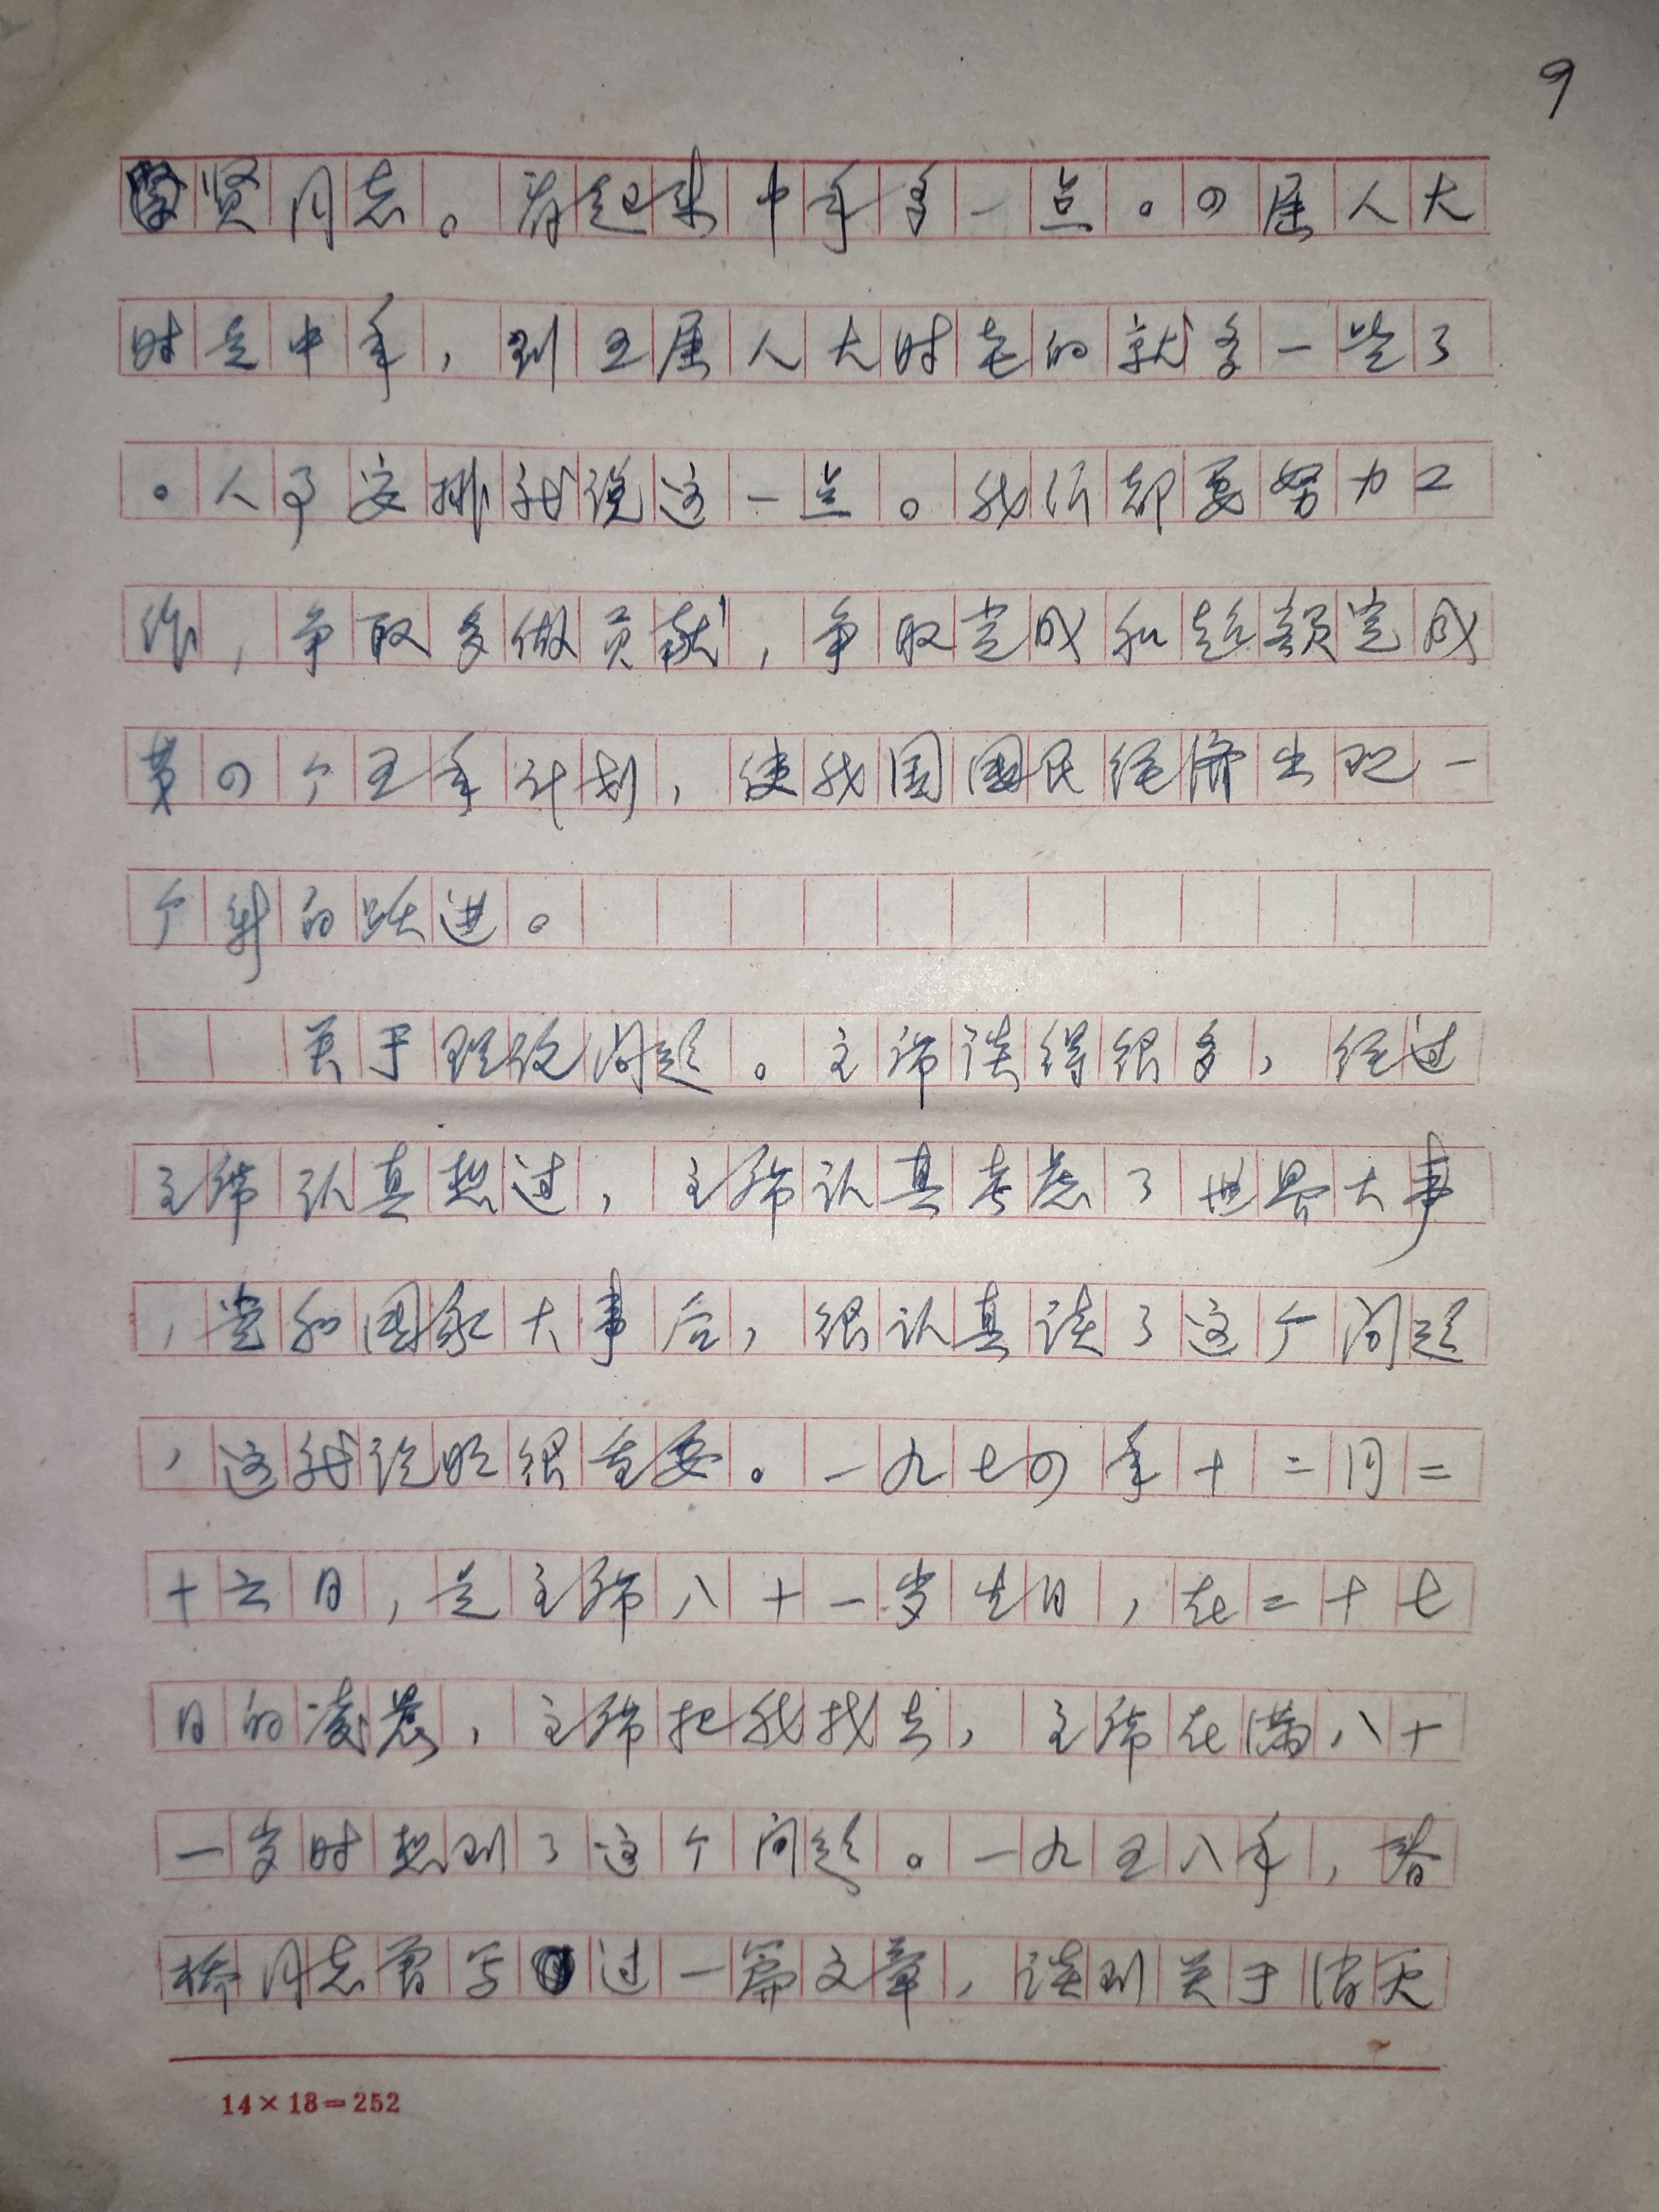 9
贤同志。看起来中年多一点。四届人大
时是中年，到五届人大时老的就多一些了
。人事安排就说这一点。我们都要努力工
作，争取多做贡献，争取完成和超额完成
第四个五年计划，使我国国民经济出现一
个新的跃进。
关于理论问题。主席谈得很多，经过
主席认真想过，主席认真考虑了世界大事
，党和国家大事后，很认真谈了这个问题
，这就说明很重要。一九七四年十二月二
十六日，是主席八十一岁生日，在二十七
日的凌晨，主席把我找去，主席在满八十
一岁时想到了这个问题。一九五八年，春
桥同志曾写过一篇文章，谈到关于
14×18=252